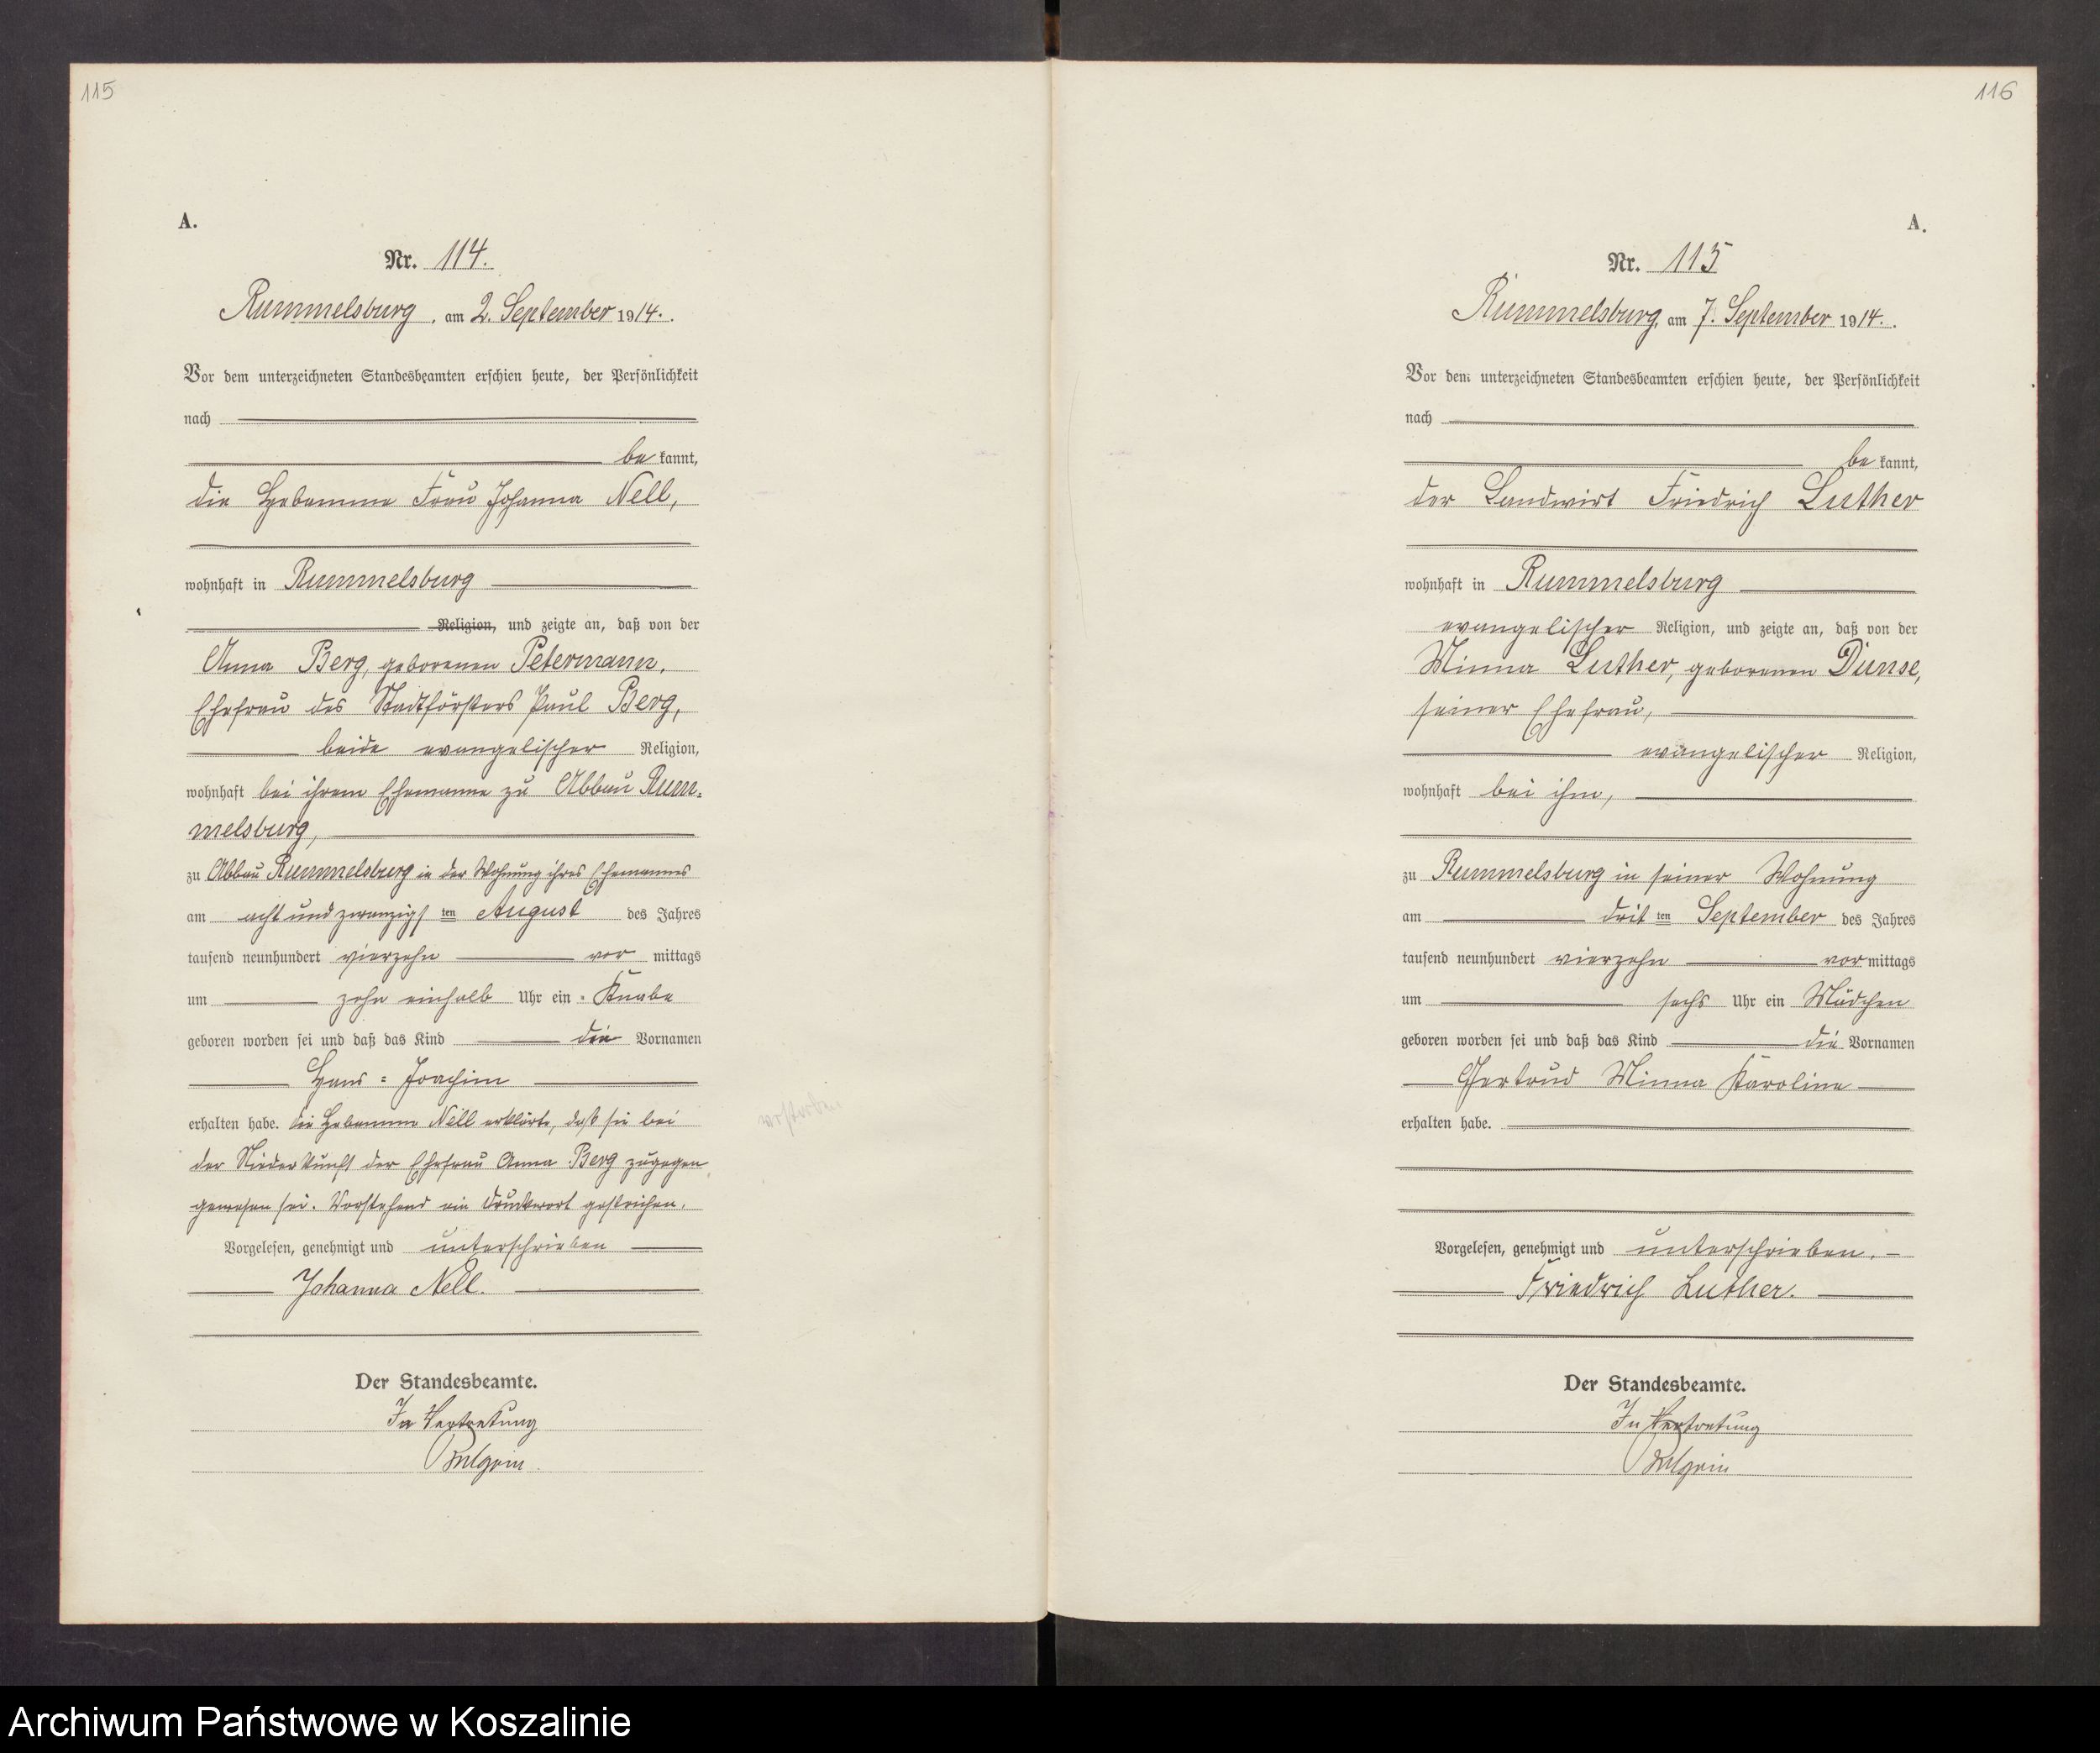 115
A.
Nr. 114.
Rummelsburg, am 2. September 1914.
Vor dem unterzeichneten Standesbeamten erschien heute, der Persönlichkeit
nach
be kannt,
die Hebamme Frau Johanna Nell,
wohnhaft in Rummelsburg
Religion, und zeigte an, daß von der
Anna Berg, geborenen Petermann,
Ehefrau des Stadtförsters Paul Berg,
beide evangelischer Religion,
wohnhaft bei ihrem Ehemanne zu Abbau Rum-
melsburg,
zu Abbau Rummelsburg in der Wohnung ihres Ehemannes
am acht und zwanzigs ten August des Jahres
tausend neunhundert vierzehn vor mittags
um zehn einhalb Uhr ein Knabe
geboren worden sei und daß das Kind die Vornamen
Hans = Joachim
erhalten habe. Die Hebamme Nell erklärte, daß sie bei
der Niederkunft der Ehefrau Anna Berg zugegen
gewesen sei. Vorstehend ein Druckwort gestrichen.
Vorgelesen, genehmigt und unterschrieben
Johanna Nell.
Der Standesbeamte.
In Vertretung
verstorben
116
A.
Nr. 115
Rummelsburg, am 7. September 1914.
Vor dem unterzeichneten Standesbeamten erschien heute, der Persönlichkeit
nach
be kannt,
der Landwirt Friedrich Luther
wohnhaft in Rummelsburg
evangelischer Religion, und zeigte an, daß von der
Minna Luther, geborenen Dunse,
seiner Ehefrau,
evangelischer Religion,
wohnhaft bei ihm,
zu Rummelsburg in seiner Wohnung
am drit ten September des Jahres
tausend neunhundert vierzehn vor mittags
um sechs Uhr ein Mädchen
geboren worden sei und daß das Kind die Vornamen
Gertrud Minna Karoline
erhalten habe.
Vorgelesen, genehmigt und unterschrieben.
Friedrich Luther.
Der Standesbeamte.
In Vertretung
Archiwum Państwowe w Koszalinie